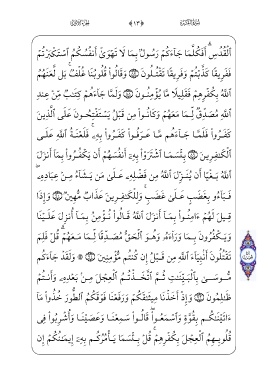 الجزء الأول ﴿١٣﴾ سورة البقرة
ٱلْقُدُسِ ۗ أَفَكُلَّمَا جَآءَكُمْ رَسُولٌۢ بِمَا لَا تَهْوَىٰٓ أَنفُسُكُمُ ٱسْتَكْبَرْتُمْ
فَفَرِيقًا كَذَّبْتُمْ وَفَرِيقًا تَقْتُلُونَ ﴿٨٧﴾ وَقَالُوا۟ قُلُوبُنَا غُلْفٌۢ ۚ بَل لَّعَنَهُمُ
ٱللَّهُ بِكُفْرِهِمْ فَقَلِيلًا مَّا يُؤْمِنُونَ ﴿٨٨﴾ وَلَمَّا جَآءَهُمْ كِتَٰبٌ مِّنْ عِندِ
ٱللَّهِ مُصَدِّقٌ لِّمَا مَعَهُمْ وَكَانُوا۟ مِن قَبْلُ يَسْتَفْتِحُونَ عَلَى ٱلَّذِينَ
كَفَرُوا۟ فَلَمَّا جَآءَهُم مَّا عَرَفُوا۟ كَفَرُوا۟ بِهِۦ ۚ فَلَعْنَةُ ٱللَّهِ عَلَى
ٱلْكَٰفِرِينَ ﴿٨٩﴾ بِئْسَمَا ٱشْتَرَوْا۟ بِهِۦٓ أَنفُسَهُمْ أَن يَكْفُرُوا۟ بِمَآ أَنزَلَ
ٱللَّهُ بَغْيًا أَن يُنَزِّلَ ٱللَّهُ مِن فَضْلِهِۦ عَلَىٰ مَن يَشَآءُ مِنْ عِبَادِهِۦ ۖ
فَبَآءُو بِغَضَبٍ عَلَىٰ غَضَبٍ ۚ وَلِلْكَٰفِرِينَ عَذَابٌ مُّهِينٌ ﴿٩٠﴾ وَإِذَا
قِيلَ لَهُمْ ءَامِنُوا۟ بِمَآ أَنزَلَ ٱللَّهُ قَالُوا۟ نُؤْمِنُ بِمَآ أُنزِلَ عَلَيْنَا
وَيَكْفُرُونَ بِمَا وَرَآءَهُۥ وَهُوَ ٱلْحَقُّ مُصَدِّقًا لِّمَا مَعَهُمْ ۗ قُلْ فَلِمَ
تَقْتُلُونَ أَنۢبِيَآءَ ٱللَّهِ مِن قَبْلُ إِن كُنتُم مُّؤْمِنِينَ ﴿٩١﴾ ۞ وَلَقَدْ جَآءَكُم
مُّوسَىٰ بِٱلْبَيِّنَٰتِ ثُمَّ ٱتَّخَذْتُمُ ٱلْعِجْلَ مِنۢ بَعْدِهِۦ وَأَنتُمْ
ظَٰلِمُونَ ﴿٩٢﴾ وَإِذْ أَخَذْنَا مِيثَٰقَكُمْ وَرَفَعْنَا فَوْقَكُمُ ٱلطُّورَ خُذُوا۟ مَآ
ءَاتَيْنَٰكُم بِقُوَّةٍ وَٱسْمَعُوا۟ ۖ قَالُوا۟ سَمِعْنَا وَعَصَيْنَا وَأُشْرِبُوا۟ فِى
قُلُوبِهِمُ ٱلْعِجْلَ بِكُفْرِهِمْ ۚ قُلْ بِئْسَمَا يَأْمُرُكُم بِهِۦٓ إِيمَٰنُكُمْ إِن